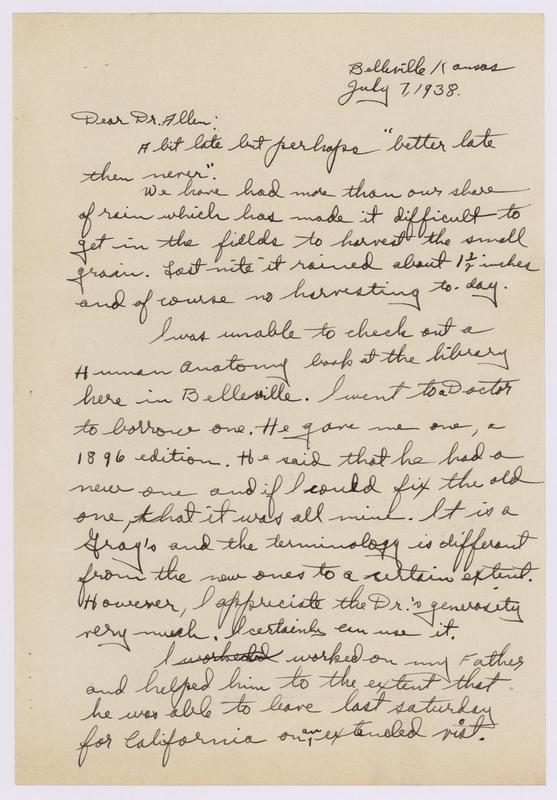 Belleville Kansas
July 7, 1938.
Dear Dr. Allen:
A bit late but perhaps "better late
then never".
We have had more than our share
of rain which has made it difficult to
get in the fields to harvest the small
grain. Last nite it rained about 1 1/2 inches
and of course no harvesting to-day.
I was unable to check out a
Human Anatomy book at the library
here in Belleville. I went to a Doctor
to borrow one. He gave me one, a
1896 edition. He said that he had a
new one and if I could fix the old
one, that it was all mine. It is a
Gray's and the terminology is different
from the new ones to a certain extent.
However, I appreciate the Dr.'s generosity
very much. I certainly can use it.
I worked on my Father
and helped him to the extent that
he was able to leave last saturday
for California on an extended visit.